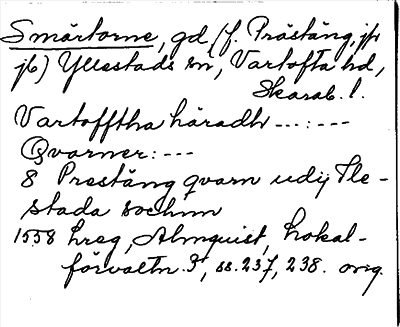 Smärtorne, gd (f. Prästäng, jfr
jb) Yllestads sn, Vartofta hd,
Skarab. l.
Vartofftha häradh ---:---
Qvarner: ---
8 Prestäng qvarn udij Ile-
stada sochnn
1558 hreg, Almquist, Lokal-
förvaltn. 3, ss. 237, 238. orig.